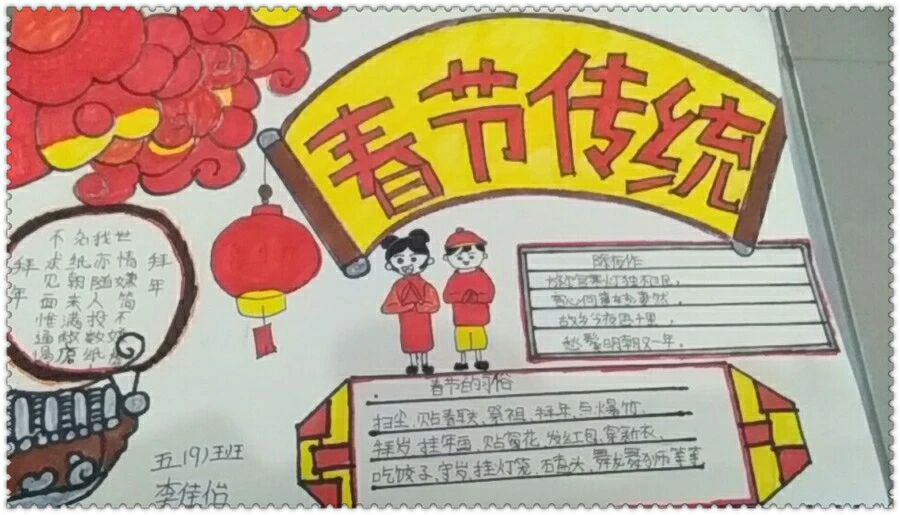 春节传统
拜年
不求见面惟通
名纸朝来满敝庐
我亦随人投数纸
世情嫌简不嫌
拜年
除夜作
故乡今夜思千里,
愁鬓明朝又一年。
春节的习俗
扫尘、贴春联、祭祖、拜年、与爆竹、
拜岁、挂年画、贴窗花、发红包、穿新衣、
吃饺子、守岁、挂灯笼、舞龙舞狮等等
五(9)班
李佳怡